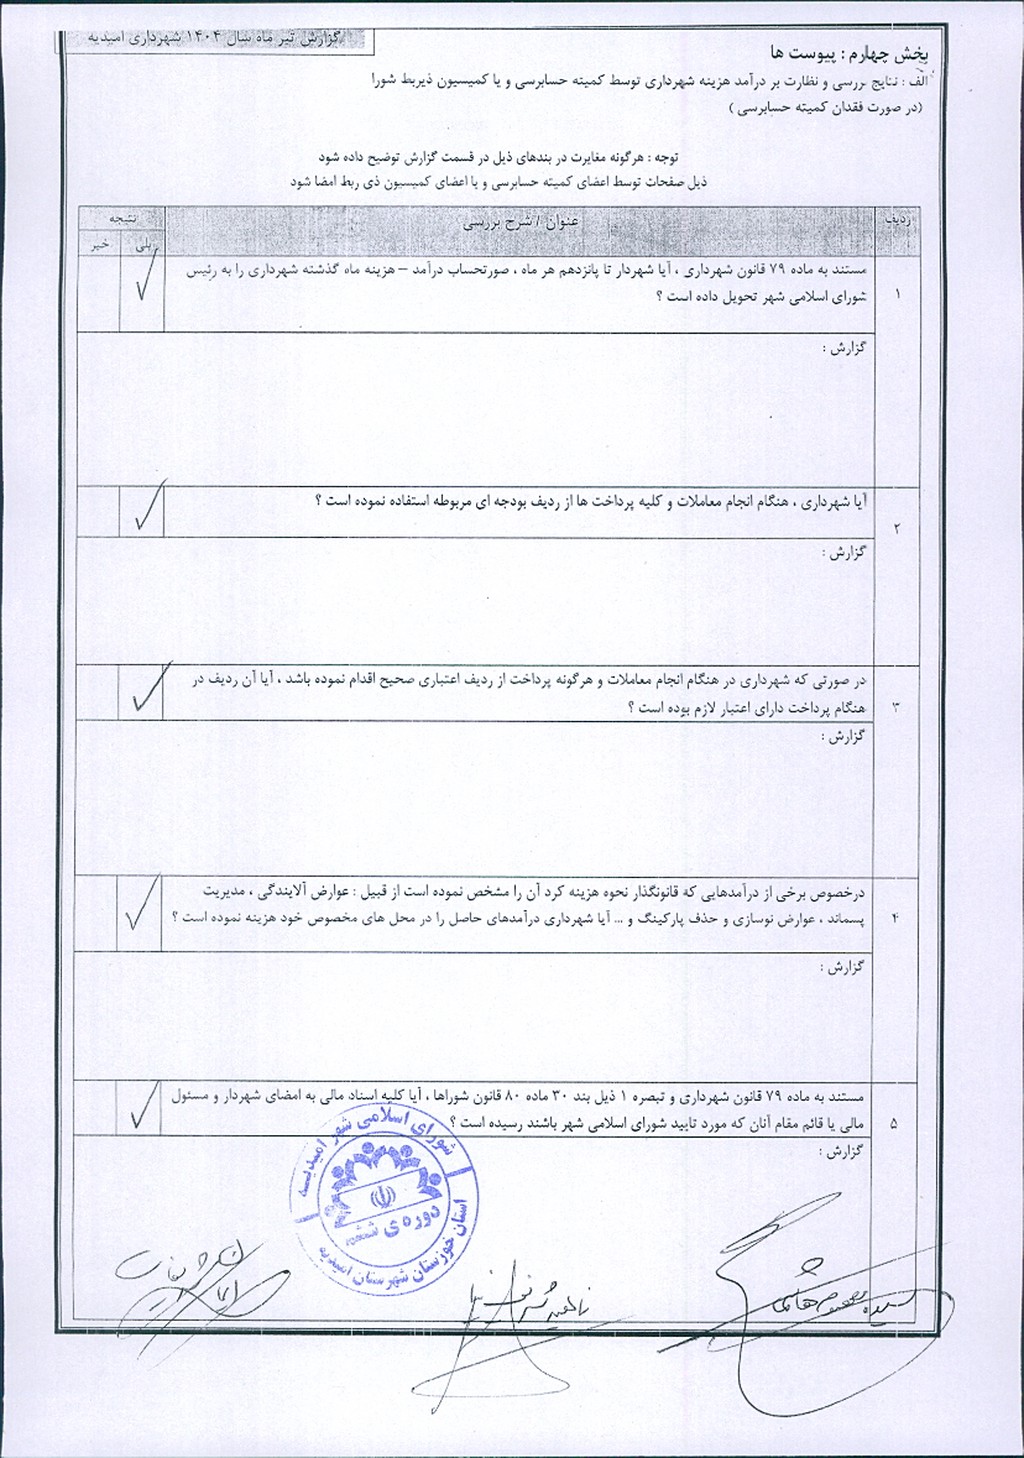 گزارش تیر ماه سال ۱۴۰۴ شهرداری امیدیه
بخش چهارم : پیوست ها
الف : نتایج بررسی و نظارت بر درآمد هزینه شهرداری توسط کمیته حسابرسی و یا کمیسیون ذیربط شورا
(در صورت فقدان کمیته حسابرسی )
توجه : هرگونه مغایرت در بندهای ذیل در قسمت گزارش توضیح داده شود
ذیل صفحات توسط اعضای کمیته حسابرسی و یا اعضای کمیسیون ذی ربط امضا شود
ردیف عنوان / شرح بررسی نتیجه
بلی خیر
۱ مستند به ماده ۷۹ قانون شهرداری ، آیا شهردار تا پانزدهم هر ماه ، صورتحساب درآمد – هزینه ماه گذشته شهرداری را به رئیس
شورای اسلامی شهر تحویل داده است ؟
گزارش :
۲ آیا شهرداری ، هنگام انجام معاملات و کلیه پرداخت ها از ردیف بودجه ای مربوطه استفاده نموده است ؟
گزارش :
۳ در صورتی که شهرداری در هنگام انجام معاملات و هرگونه پرداخت از ردیف اعتباری صحیح اقدام نموده باشد ، آیا آن ردیف در
هنگام پرداخت دارای اعتبار لازم بوده است ؟
گزارش :
۴ درخصوص برخی از درآمدهایی که قانونگذار نحوه هزینه کرد آن را مشخص نموده است از قبیل : عوارض آلایندگی ، مدیریت
پسماند ، عوارض نوسازی و حذف پارکینگ و ... آیا شهرداری درآمدهای حاصل را در محل های مخصوص خود هزینه نموده است ؟
گزارش :
۵ مستند به ماده ۷۹ قانون شهرداری و تبصره ۱ ذیل بند ۳۰ ماده ۸۰ قانون شوراها ، آیا کلیه اسناد مالی به امضای شهردار و مسئول
مالی یا قائم مقام آنان که مورد تایید شورای اسلامی شهر باشند رسیده است ؟
گزارش :
شورای اسلامی شهر امیدیه
دوره ی ششم
استان خوزستان شهرستان امیدیه
سیده معصومه هاشمی